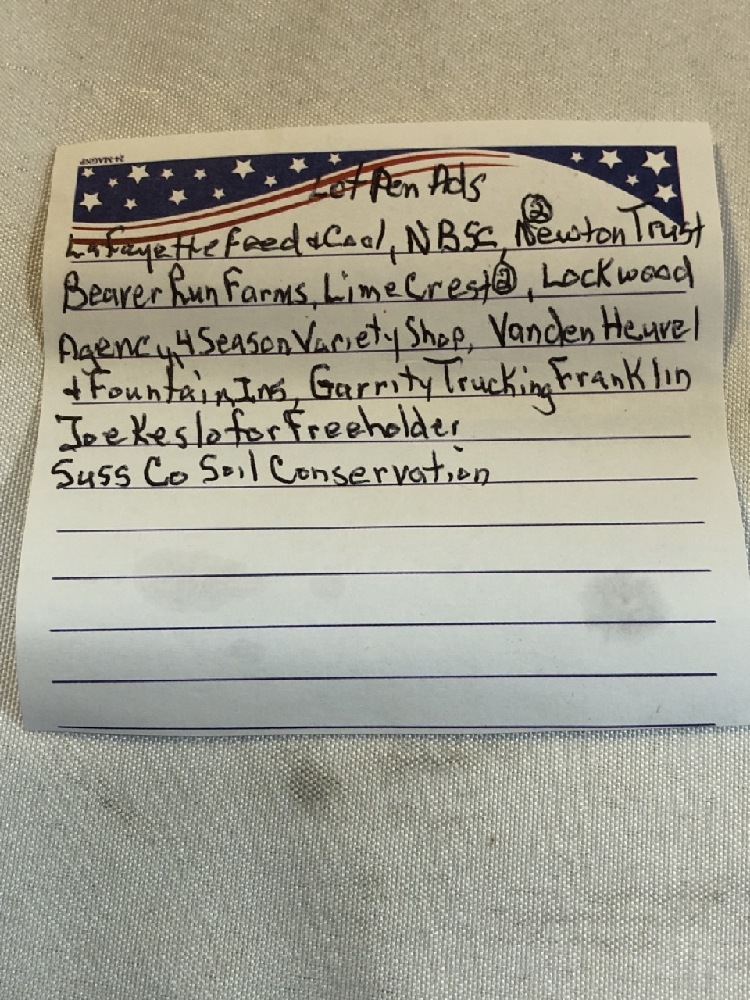 Lot Pen Ads
Lafayette Feed & Coal, NBSC, Newton Trust ②
Beaver Run Farms, Lime Crest ②, Lockwood
Agency, 4 Season Variety Shop, Vanden Heuvel
& Fountain Ins, Garrity Trucking Franklin
Joe Keslo for Freeholder
Suss Co Soil Conservation